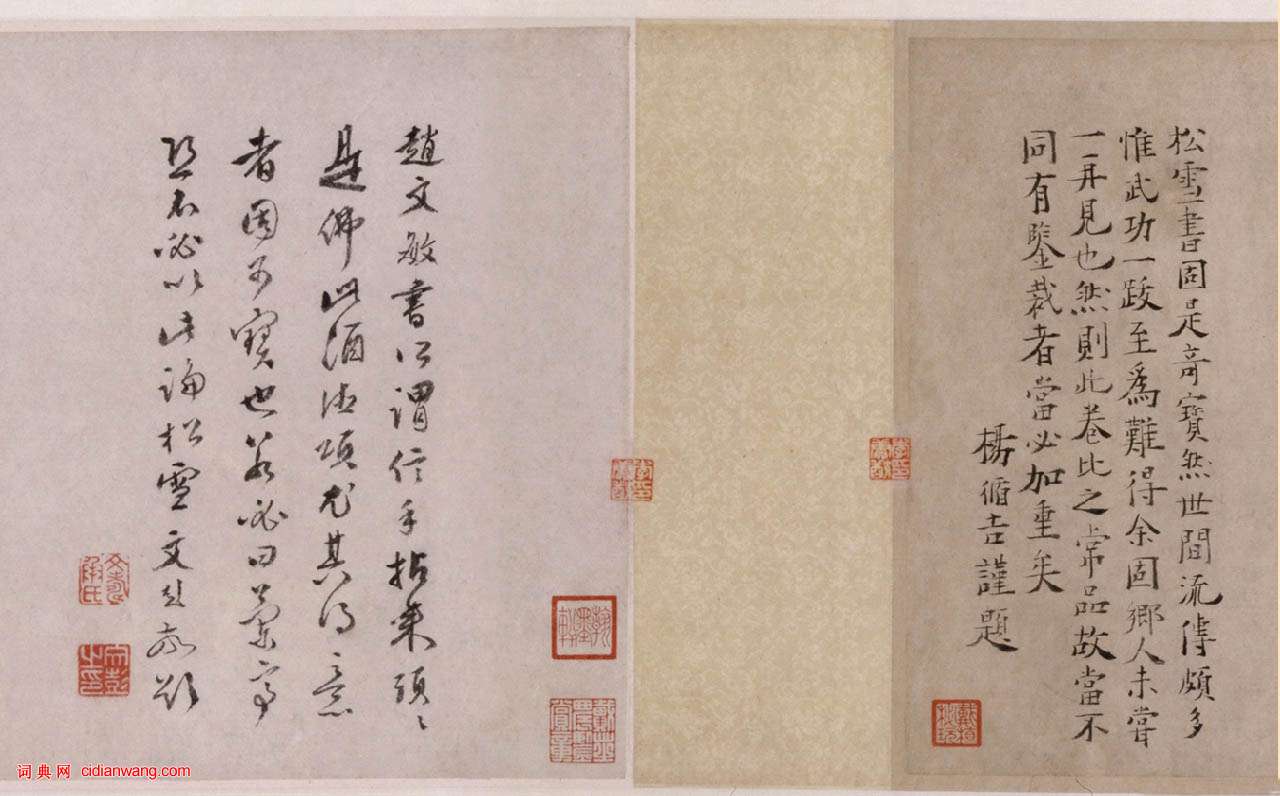 松雪書固是奇寶然世間流傳頗多
惟武功一跋至爲難得余固鄉人未嘗
一再見也然則此卷比之常品故當不
同有鑒裁者當必加重矣
楊循吉謹題
趙文敏書所謂信手拈來頭〻
是佛此酒德頌尤其得意
者固可寶也若必曰蘭亭
恐不必以此論松雪文彭敬題
文壽承氏
文彭之印
词典网 cidianwang.com